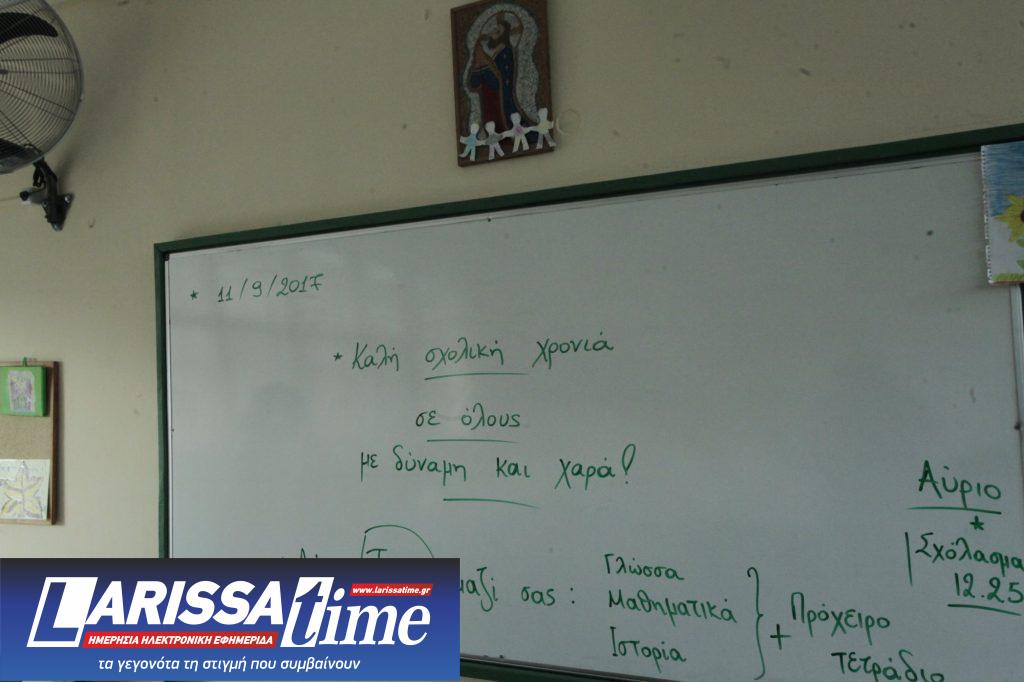 * 11/9/2017
* Καλή σχολική χρονιά
σε όλους
με δύναμη και χαρά!
Αύριο
*
Σχόλασμα
12.25
μαζί σας :
Γλώσσα
Μαθηματικά
Ιστορία
+ Πρόχειρο
τετράδιο
LARISSA time
www.larissatime.gr
ΗΜΕΡΗΣΙΑ ΗΛΕΚΤΡΟΝΙΚΗ ΕΦΗΜΕΡΙΔΑ
τα γεγονότα τη στιγμή που συμβαίνουν